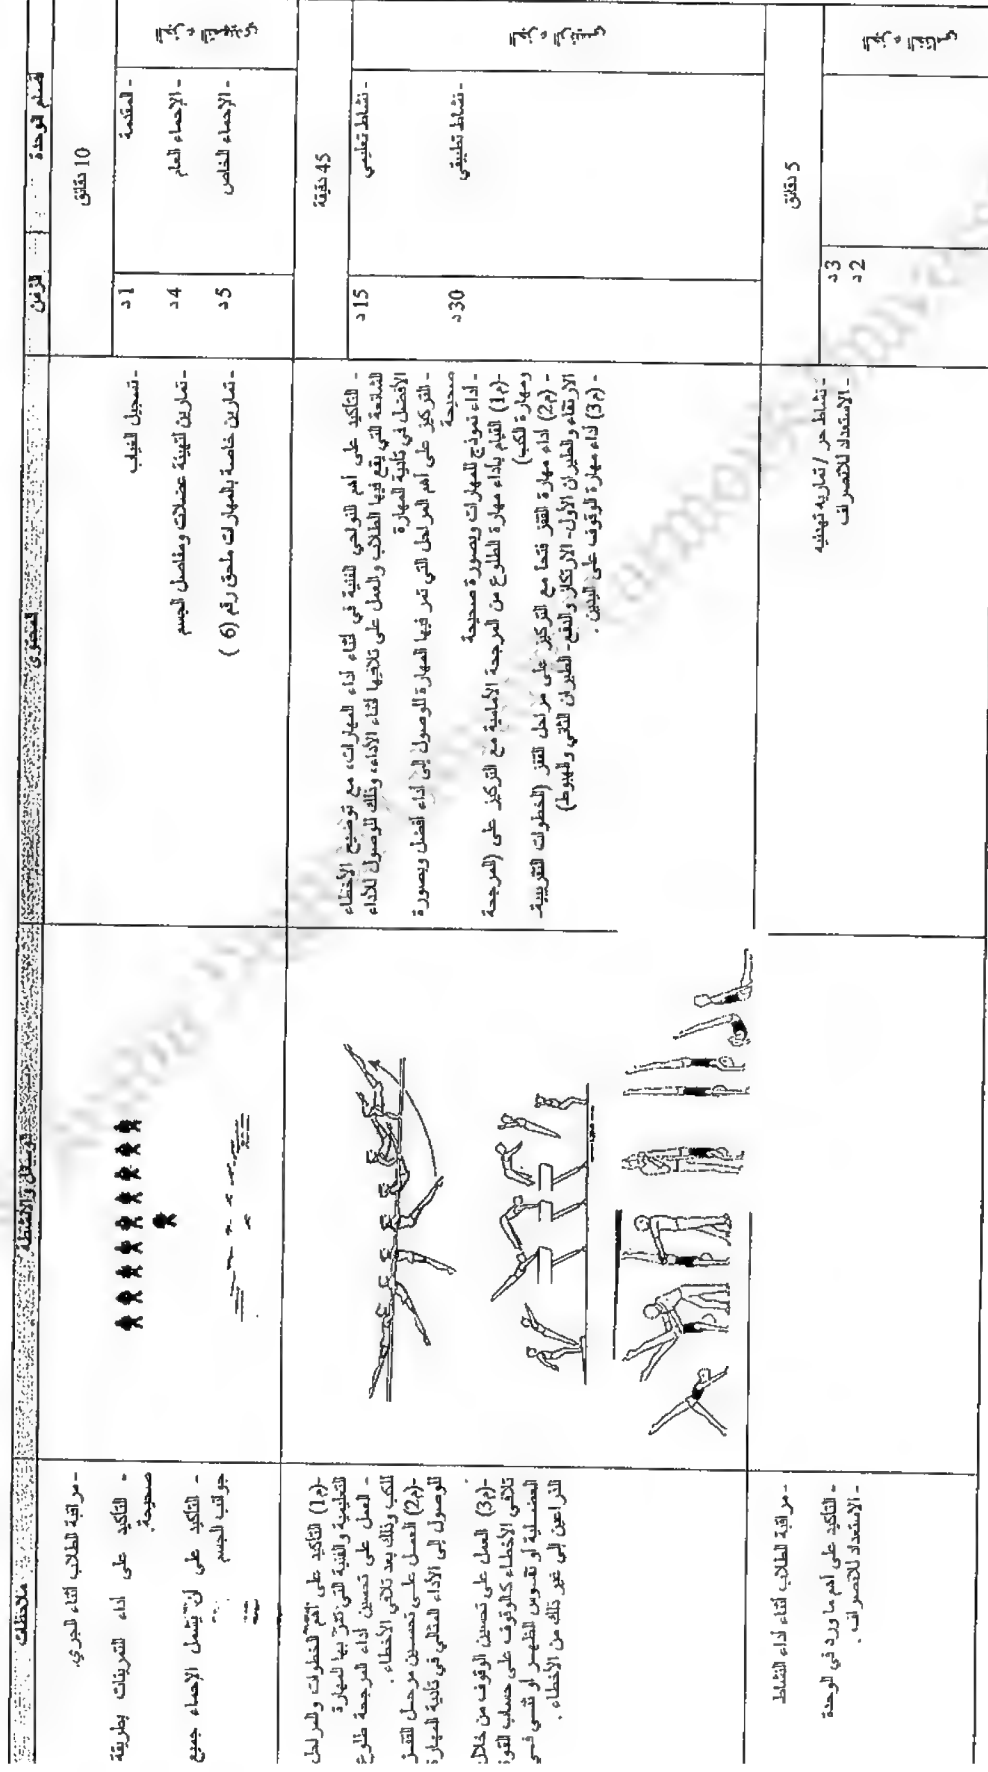 قسم الوحدة
الزمن
المحتوى
الوسائل والأنشطة
ملاحظات
10 دقائق
- المقدمة
1 د
- تسجيل الغياب
- مراقبة الطلاب أثناء الجري.
- الإحماء العام
4 د
- تمارين لتهيئة عضلات ومفاصل الجسم
- التأكيد على أداء التمرينات بطريقة
صحيحة.
- الإحماء الخاص
5 د
- تمارين خاصة بالمهارات ملحق رقم (6)
- التأكيد على أن يشمل الإحماء جميع
جوانب الجسم
45 دقيقة
- نشاط تعليمي
15 د
- التأكيد على أهم النواحي الفنية في أثناء أداء المهارات، مع توضيح الأخطاء
الشائعة التي يقع فيها الطلاب والعمل على تلافيها أثناء الأداء، وذلك للوصول للأداء
الأفضل في تأدية المهارة
- التركيز على أهم المراحل التي تمر فيها المهارة للوصول إلى أداء أفضل وبصورة
صحيحة
- نشاط تطبيقي
30 د
- أداء نموذج للمهارات وبصورة صحيحة
-(م1) القيام بأداء مهارة الطلوع من المرجحة الأمامية مع التركيز على (المرجحة
ومهارة الكب)
- (م2) أداء مهارة القفز فتحا مع التركيز على مراحل القفز (الخطوات التقريبية-
الارتقاء والطيران الأول- الارتكاز والدفع- الطيران الثاني والهبوط)
- (م3) أداء مهارة الوقوف على اليدين .
-(م1) التأكيد على أهم الخطوات والمراحل
التعليمية والفنية التي تمر بها المهارة
- العمل على تحسين أداء المرجحة طلوع
الكب وذلك بعد تلافي الأخطاء .
-(م2) العمل على تحسين مرحل القفز
للوصول إلى الأداء المثالي في تأدية المهارة
-(م3) العمل على تحسين الوقوف من خلال
تلافي الأخطاء كالوقوف على حساب القوة
العضلية أو تقوس الظهر أو ثني في
الذراعين إلى غير ذلك من الأخطاء .
5 دقائق
3 د
2 د
- نشاط حر / تمارين تهدئيه
- الاستعداد للانصراف
- مراقبة الطلاب أثناء أداء النشاط
- التأكيد على أهم ما ورد في الوحدة
- الاستعداد للانصراف .